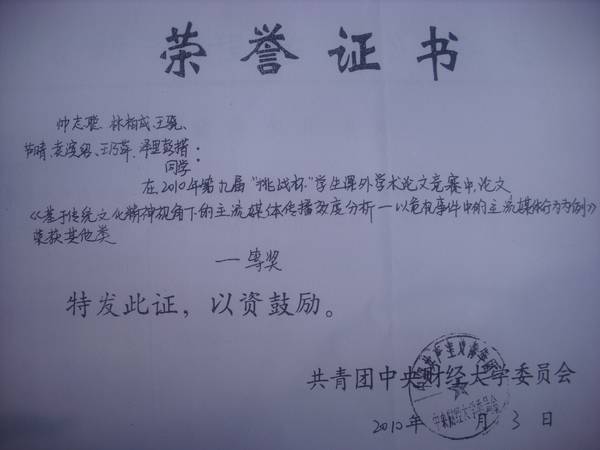 荣誉证书
帅志聪、林柏成、王琬、
芳晴、袁滢、王乃莘、泽里彭措:
同学
在2010年第九届"挑战杯"学生课外学术论文竞赛中,论文
《基于传统文化精神视角下的主流媒体传播效度分析—以危机事件中的主流媒体行为为例》
荣获其他类
一等奖
特发此证,以资鼓励。
共青团中央财经大学委员会
2010年 月3日